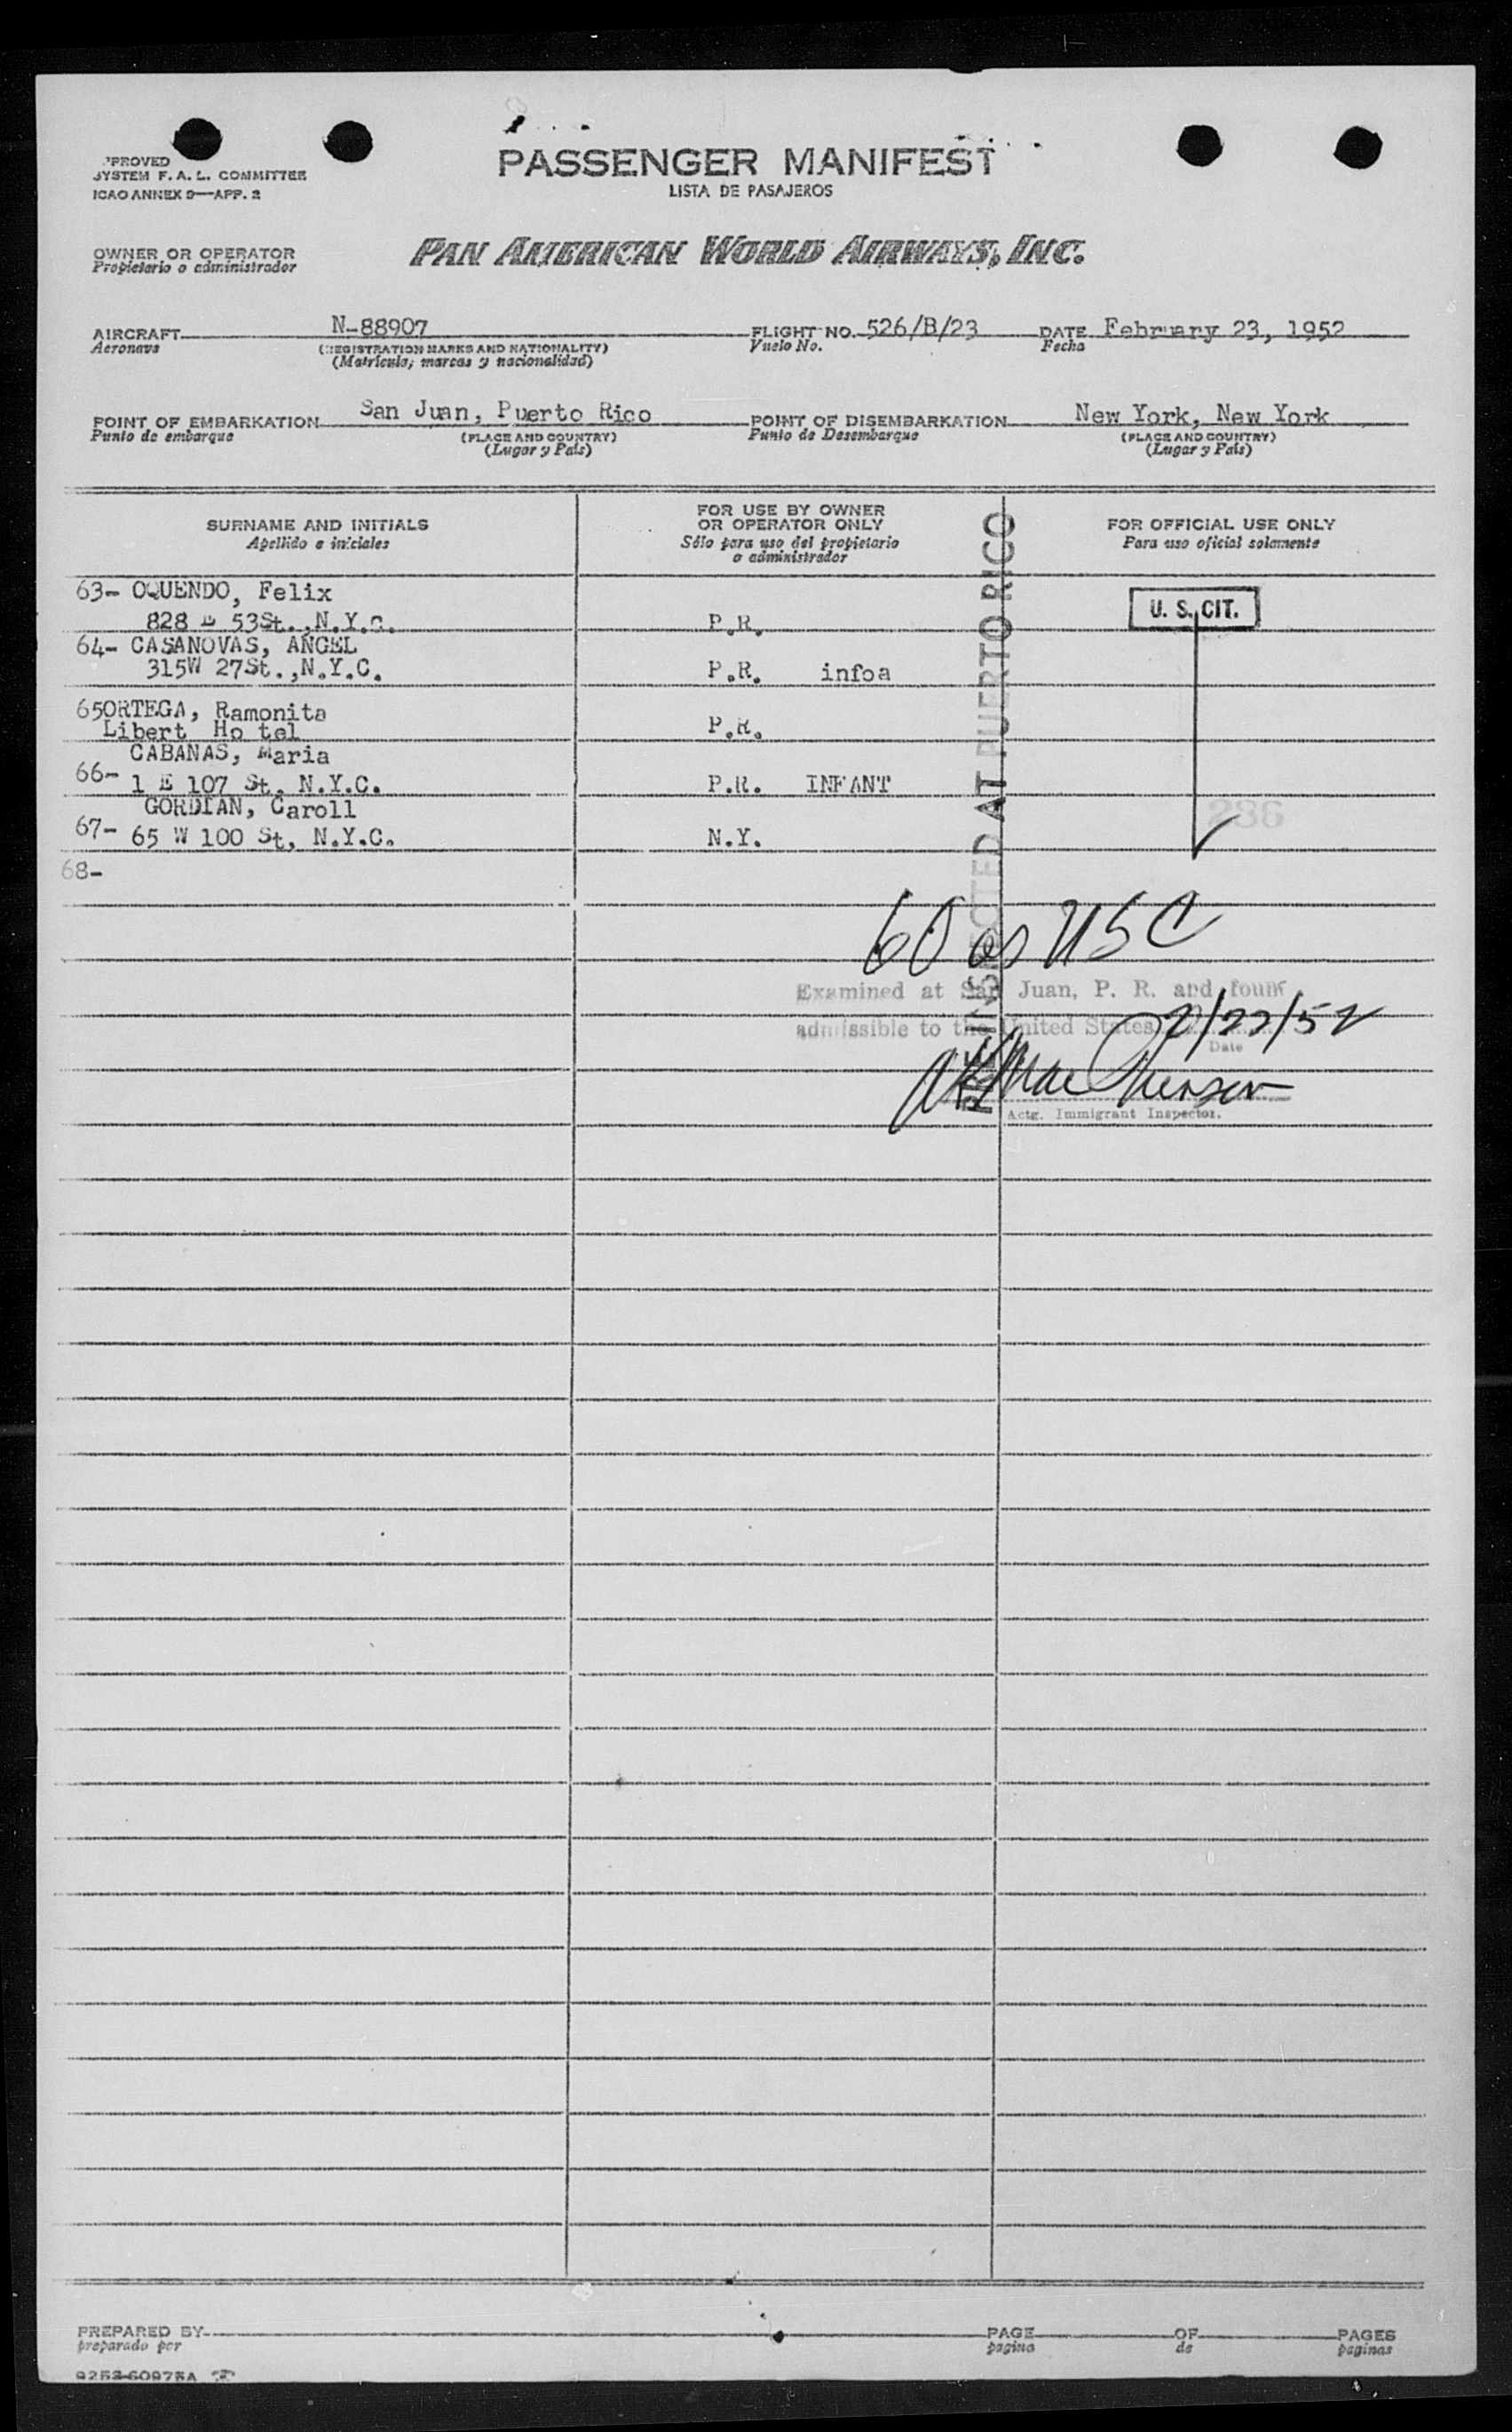 PASSENGER MANIFEST
LISTA DE PASAJEROS
SYSTEM F. A. L. COMMITTEE
ICAO ANNEX 9—APP. 2
OWNER OR OPERATOR
Propietario o administrador
PAN AMERICAN WORLD AIRWAYS, INC.
AIRCRAFT N-88907 FLIGHT NO. 526/B/23 DATE February 23, 1952
Aeronave (REGISTRATION MARKS AND NATIONALITY) Vuelo No. Fecha
(Matrícula, marcas y nacionalidad)
POINT OF EMBARKATION San Juan, Puerto Rico POINT OF DISEMBARKATION New York, New York
Punto de embarque (PLACE AND COUNTRY) Punto de Desembarque (PLACE AND COUNTRY)
(Lugar y País) (Lugar y País)
SURNAME AND INITIALS FOR USE BY OWNER OR OPERATOR ONLY FOR OFFICIAL USE ONLY
Apellido e iniciales Sólo para uso del propietario o administrador Para uso oficial solamente
63- OQUENDO, Felix
828 E 53St.,N.Y.C. P.R. U. S. CIT.
64- CASANOVAS, ANGEL
315W 27St.,N.Y.C. P.R. infoa
65ORTEGA, Ramonita
Libert Ho tel P.R.
CABANAS, Maria
66- 1 E 107 St, N.Y.C. P.R. INFANT
GORDIAN, Caroll 286
67- 65 W 100 St, N.Y.C. N.Y.
68-
INSPECTED AT PUERTO RICO
60 as USC
Examined at San Juan, P. R. and found
admissible to the United States 2/23/52
Date
Actg. Immigrant Inspector.
PREPARED BY PAGE OF PAGES
preparado por pagina de paginas